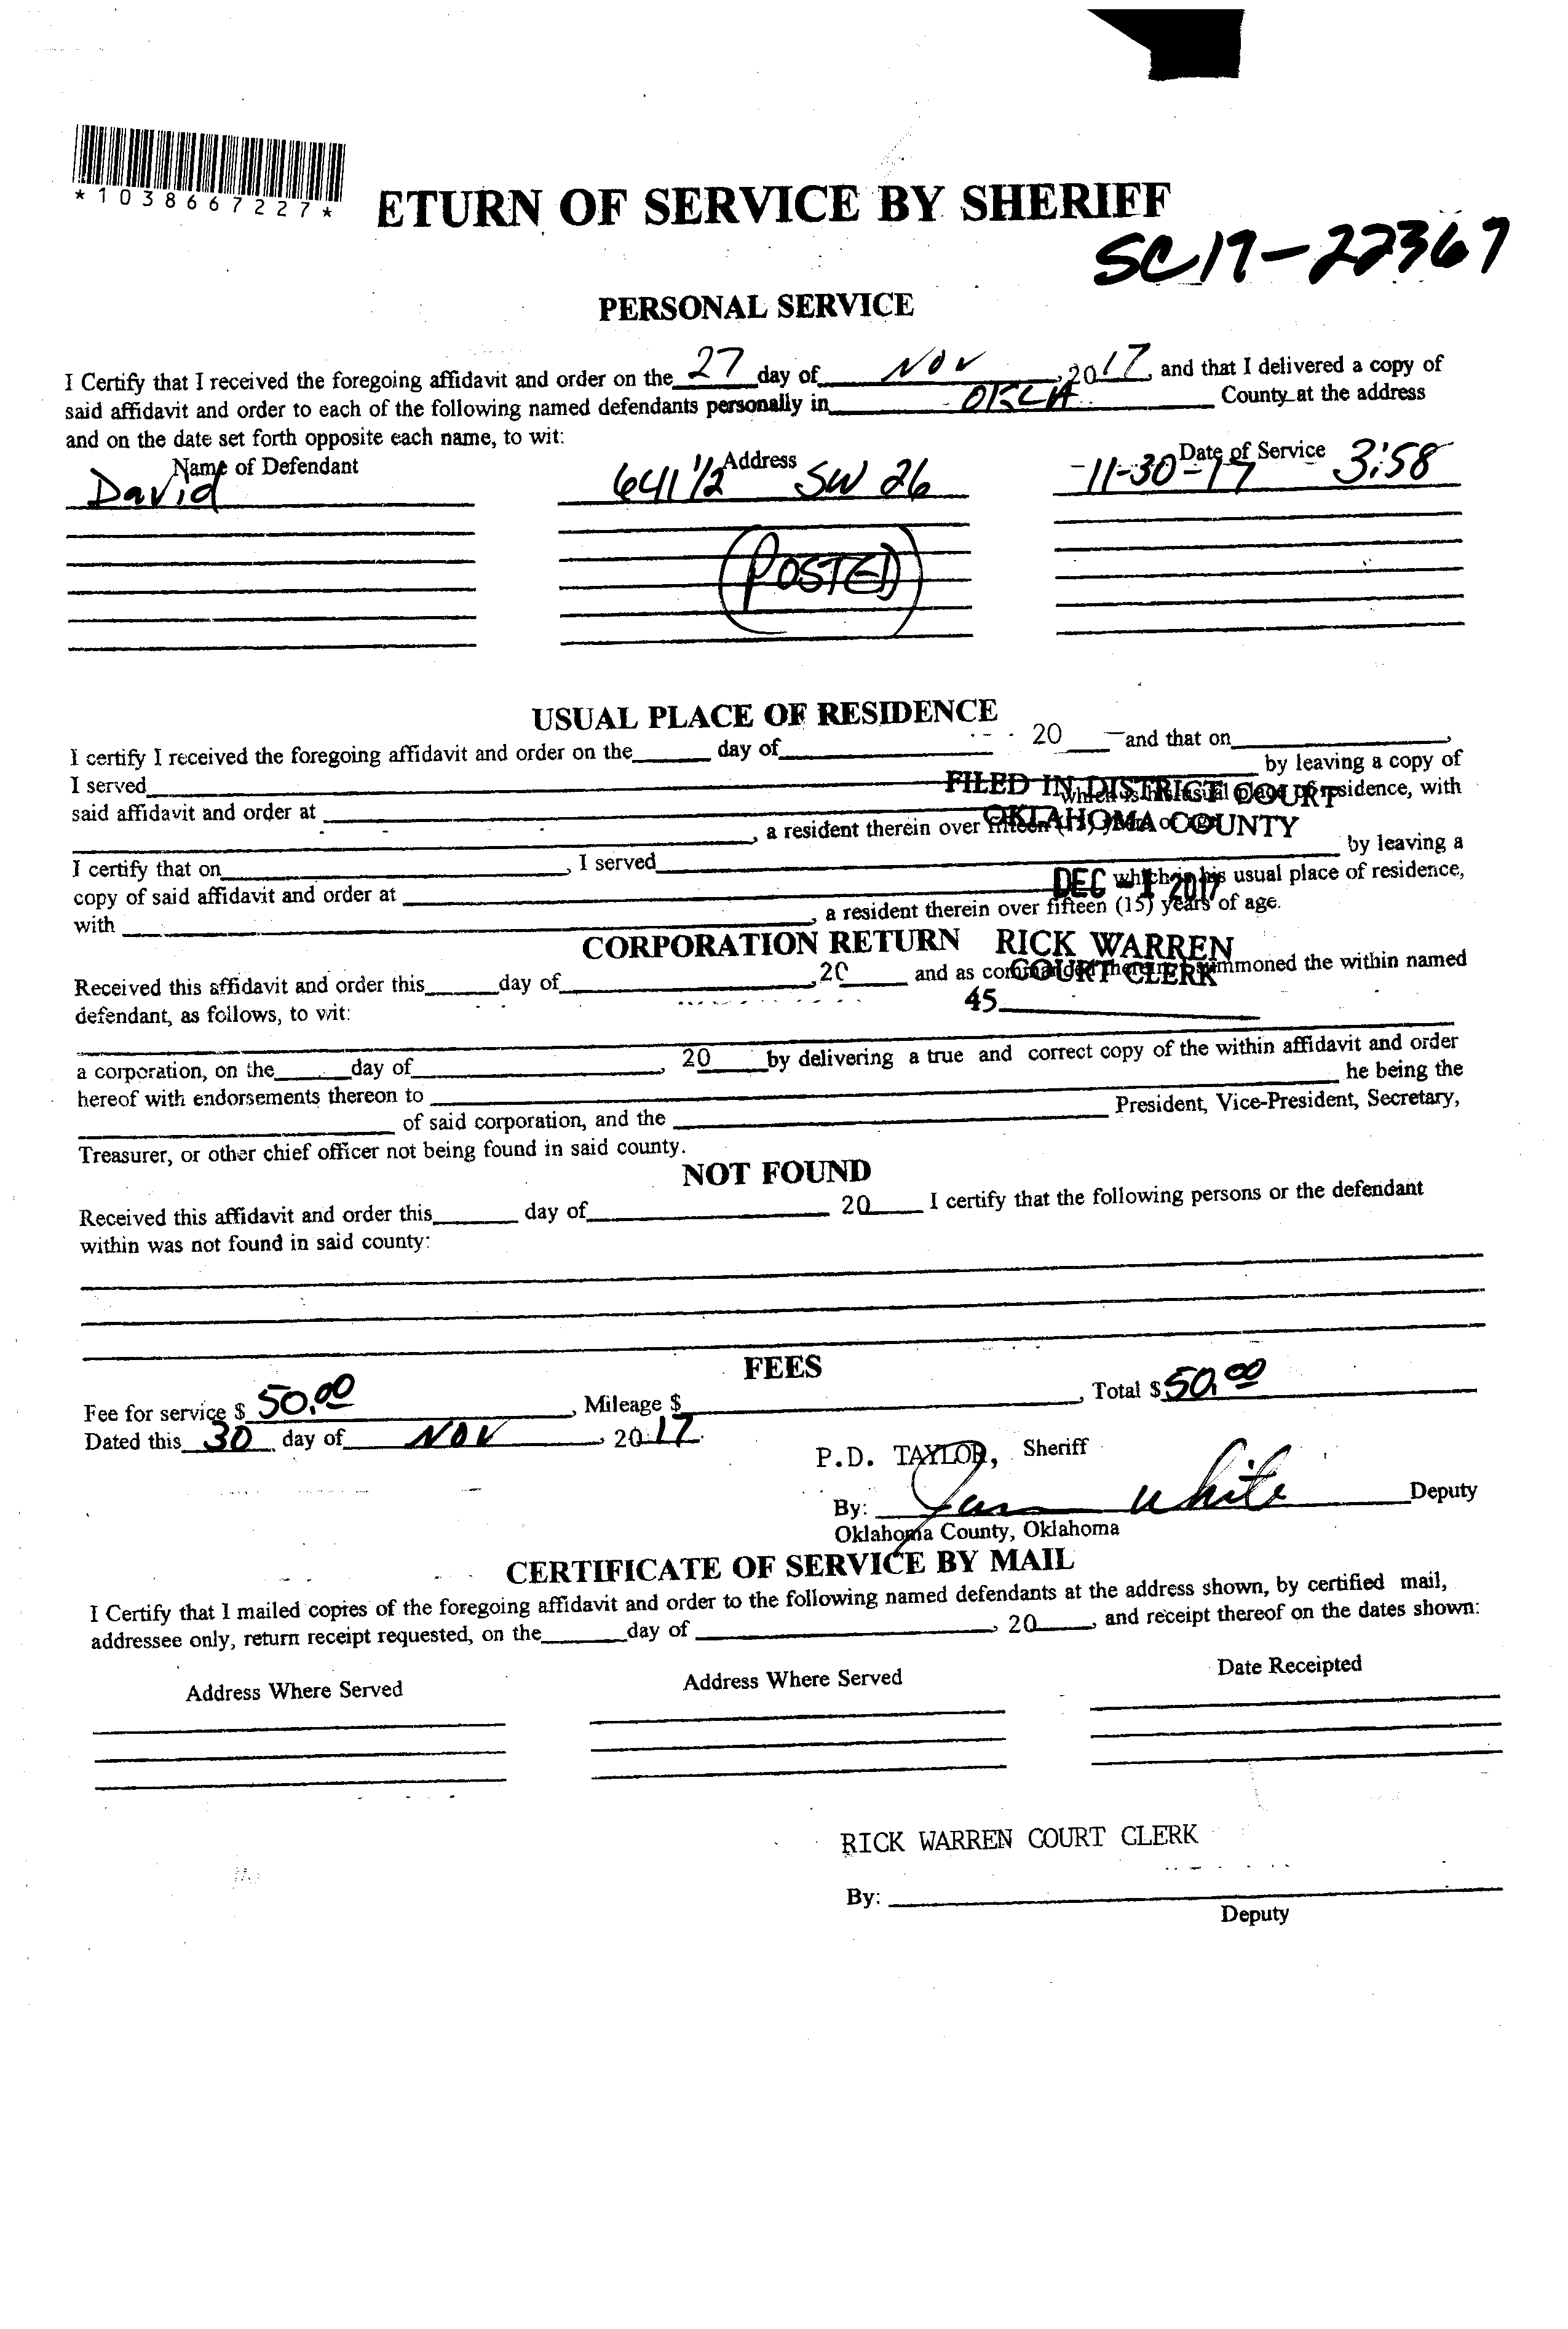 *1038667227*
ETURN OF SERVICE BY SHERIFF
SC17-22367
PERSONAL SERVICE
I Certify that I received the foregoing affidavit and order on the 27 day of NOV, 2017, and that I delivered a copy of
said affidavit and order to each of the following named defendants personally in OKLA County at the address
and on the date set forth opposite each name, to wit:
Name of Defendant Address Date of Service
David 641 1/2 SW 26 11-30-17 3:58
(POSTED)
USUAL PLACE OF RESIDENCE
I certify I received the foregoing affidavit and order on the ____ day of ____ 20 ____ and that on ____,
I served ____ by leaving a copy of
said affidavit and order at ____ which is his usual place of residence, with
____, a resident therein over fifteen (15) years of age.
FILED IN DISTRICT COURT
OKLAHOMA COUNTY
I certify that on ____, I served ____ by leaving a
copy of said affidavit and order at ____ which is his usual place of residence,
with ____, a resident therein over fifteen (15) years of age.
DEC - 1 2017
RICK WARREN
COURT CLERK
45____
CORPORATION RETURN
Received this affidavit and order this ____ day of ____, 20 ____ and as commanded therein I summoned the within named
defendant, as follows, to wit:
a corporation, on the ____ day of ____, 20 ____ by delivering a true and correct copy of the within affidavit and order
hereof with endorsements thereon to ____ he being the
____ of said corporation, and the ____ President, Vice-President, Secretary,
Treasurer, or other chief officer not being found in said county.
NOT FOUND
Received this affidavit and order this ____ day of ____ 20 ____ I certify that the following persons or the defendant
within was not found in said county:
FEES
Fee for service $ 50.00, Mileage $ ____, Total $ 50.00
Dated this 30 day of NOV, 2017.
P.D. TAYLOR, Sheriff
By: ____ White Deputy
Oklahoma County, Oklahoma
CERTIFICATE OF SERVICE BY MAIL
I Certify that I mailed copies of the foregoing affidavit and order to the following named defendants at the address shown, by certified mail,
addressee only, return receipt requested, on the ____ day of ____, 20 ____, and receipt thereof on the dates shown:
Address Where Served Address Where Served Date Receipted
RICK WARREN COURT CLERK
By: ____
Deputy